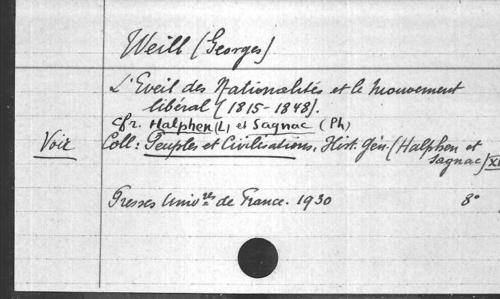 Weill (Georges)
L'Eveil des Nationalités et le Mouvement
libéral (1815-1848).
Cfr. Halphen (L) et Sagnac (Ph)
Voir Coll: Peuples et Civilisations, Hist. Gén. (Halphen et
Sagnac)
Presses Univres de France. 1930 8°